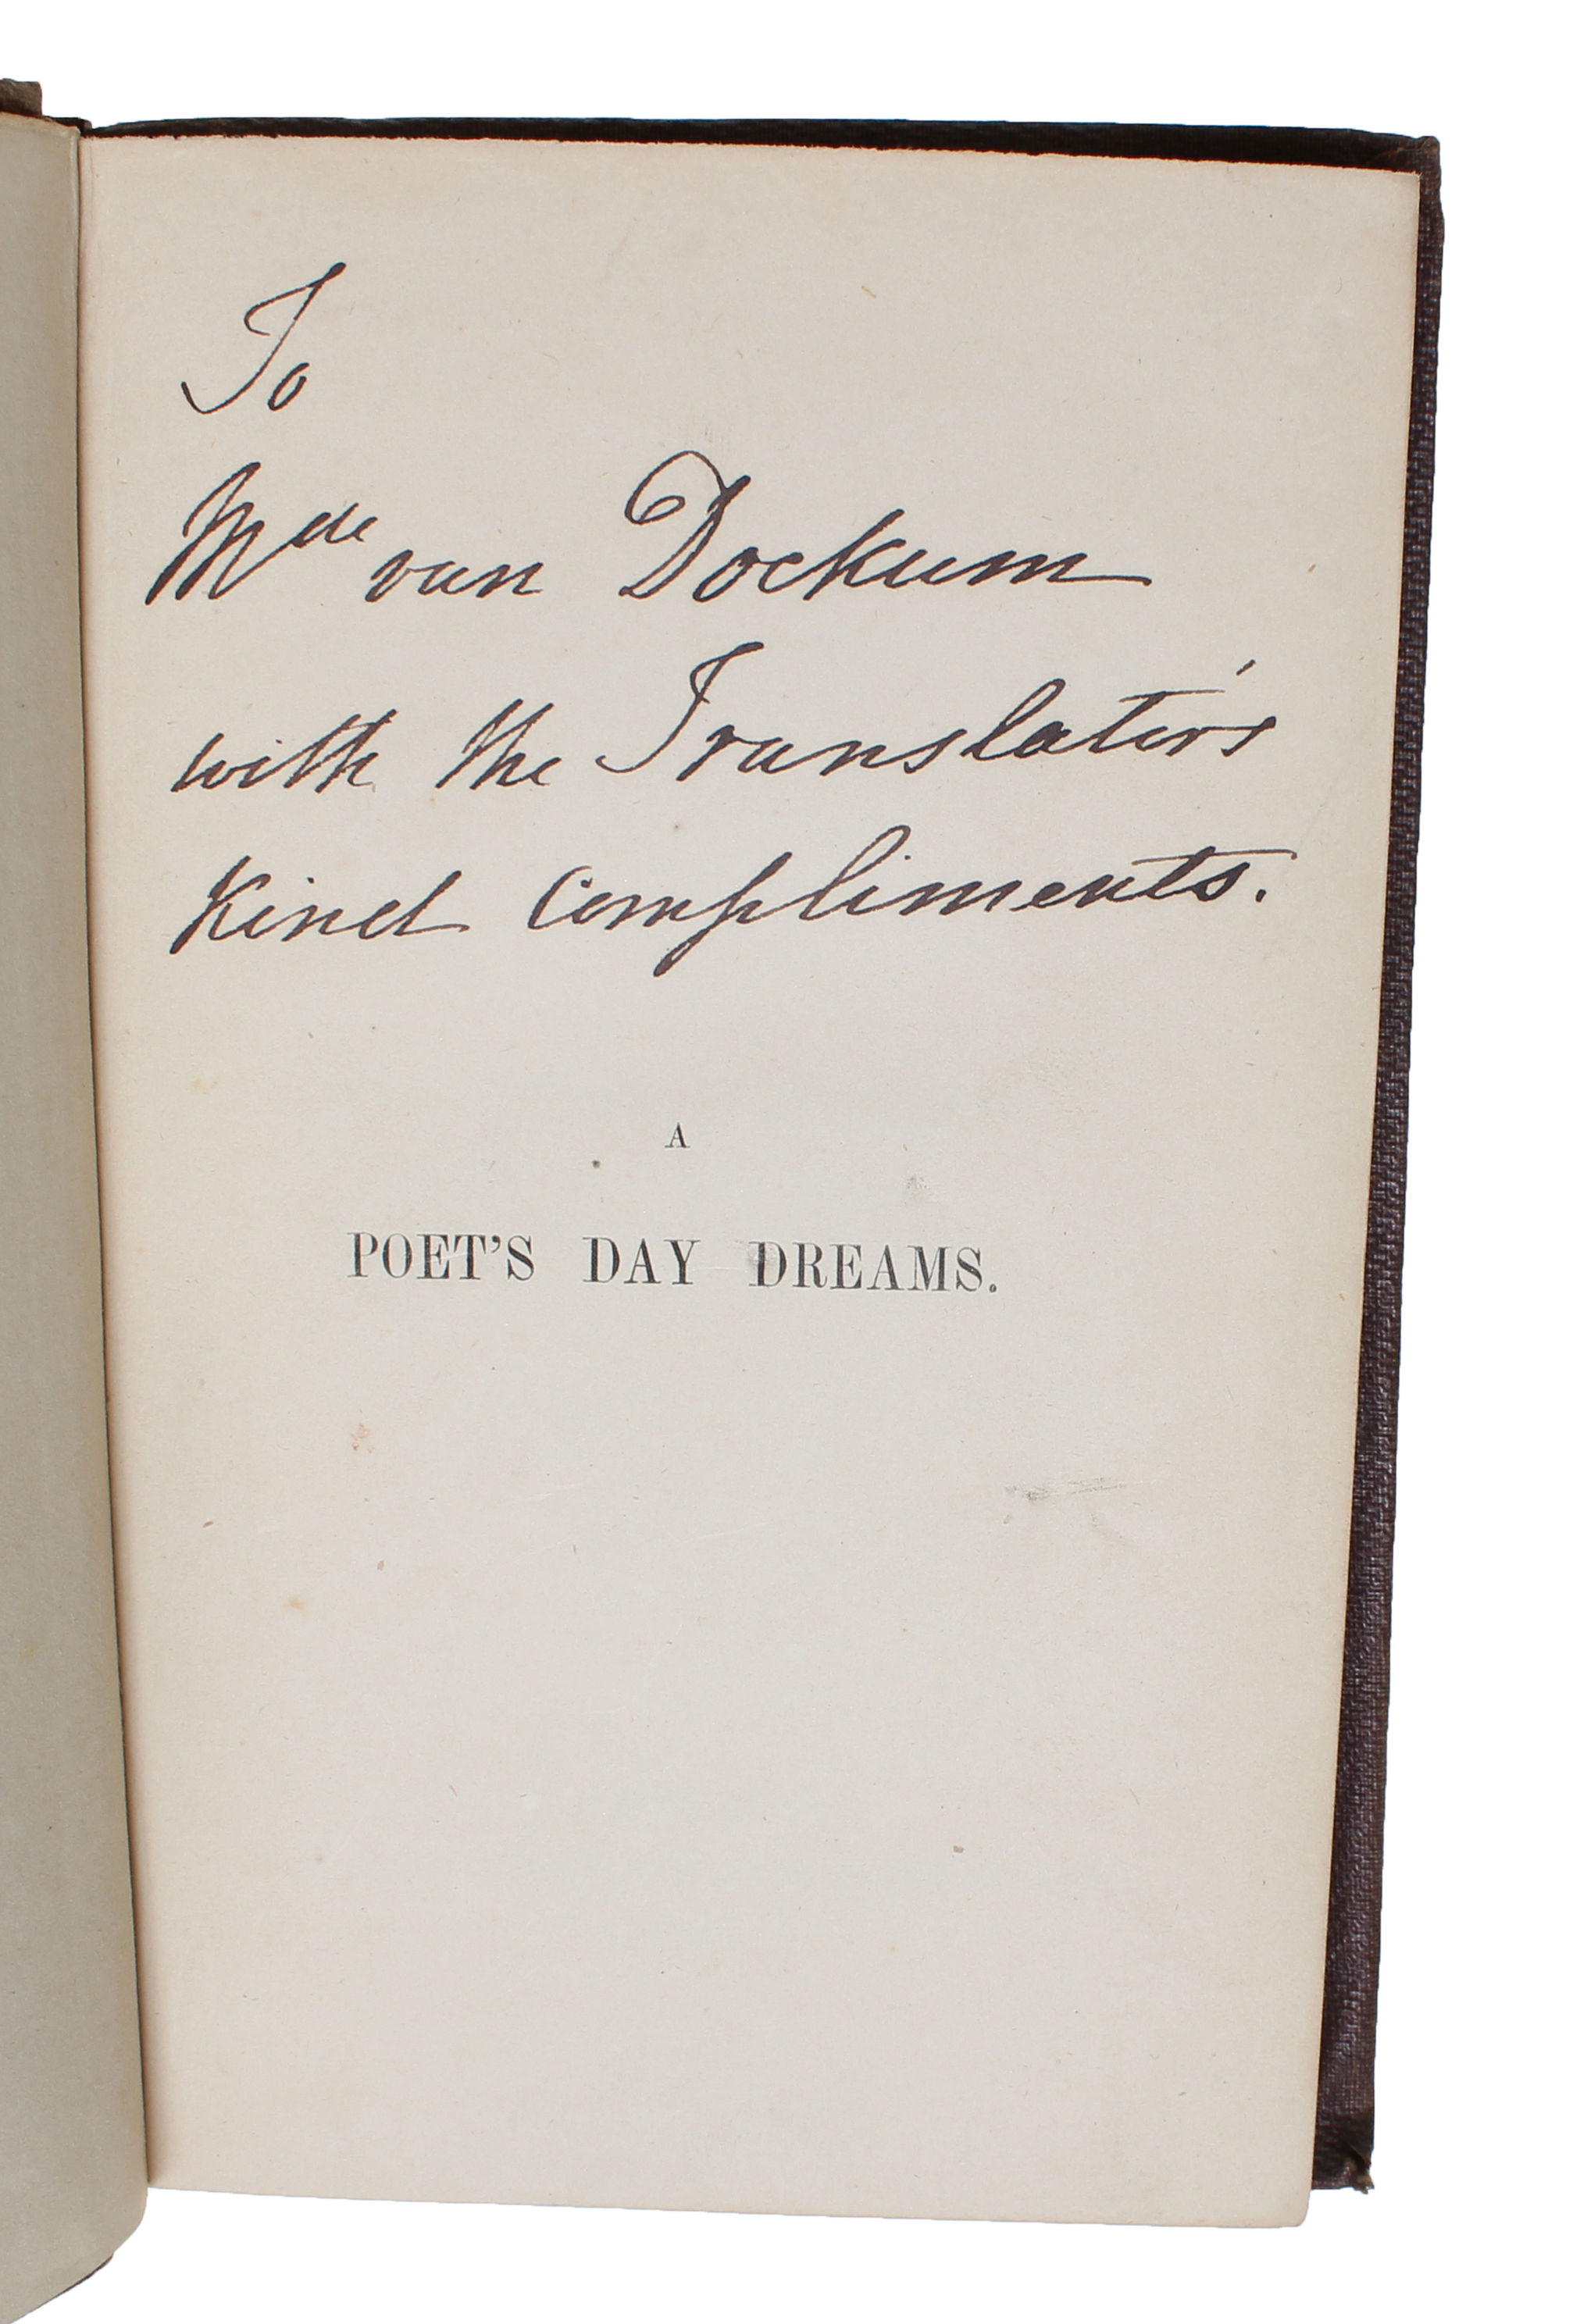 To
Mde van Dockum
with the Translator's
Kind Compliments.
A
POET'S DAY DREAMS.